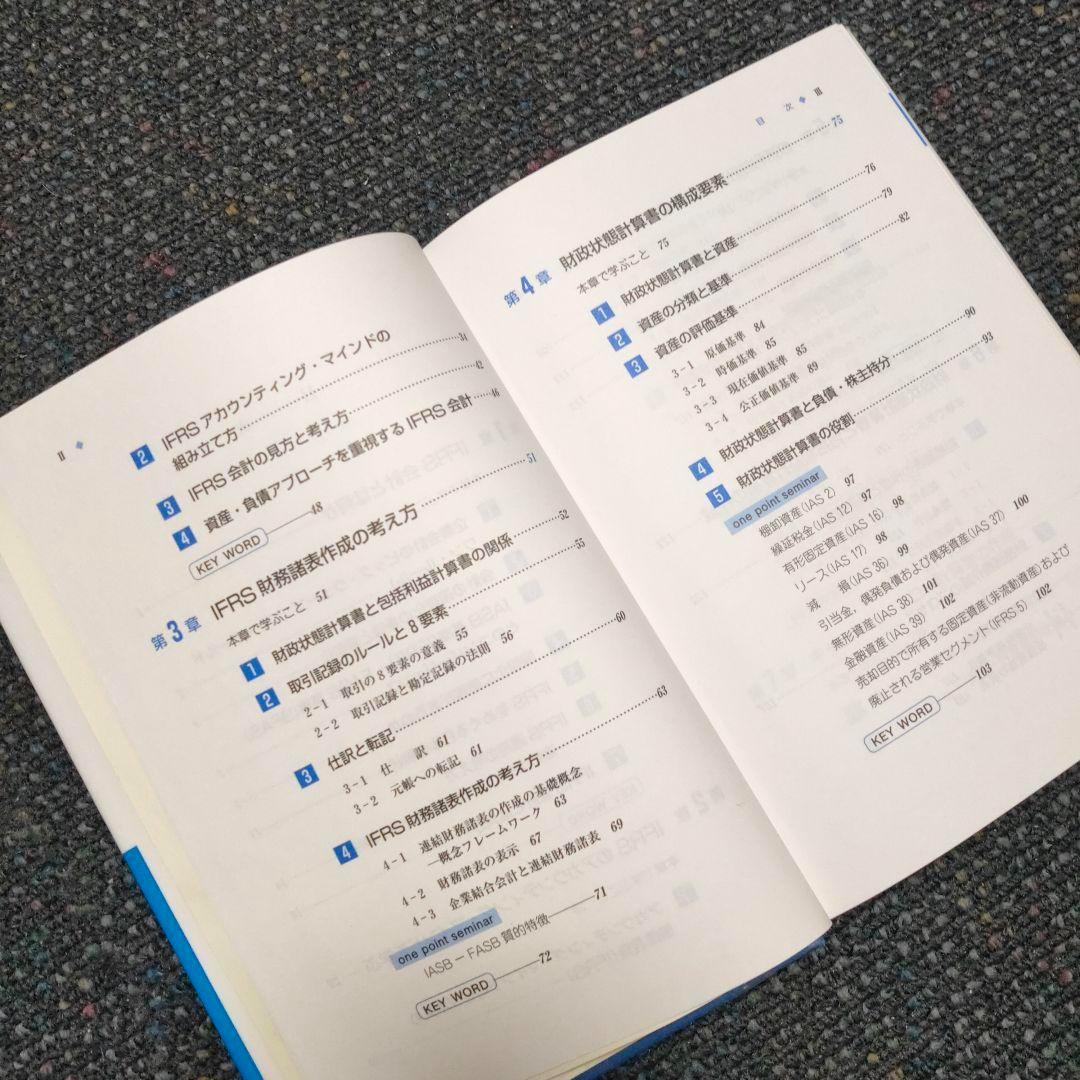 II ◆
2 IFRS アカウンティング・マインドの
組み立て方 34
3 IFRS 会計の見方と考え方 42
4 資産・負債アプローチを重視する IFRS 会計 46
KEY WORD 48
第3章 IFRS 財務諸表作成の考え方 51
本章で学ぶこと 51
1 財政状態計算書と包括利益計算書の関係 52
2 取引記録のルールと8要素 55
2-1 取引の8要素の意義 55
2-2 取引記録と勘定記録の法則 56
3 仕訳と転記 60
3-1 仕 訳 61
3-2 元帳への転記 61
4 IFRS 財務諸表作成の考え方 63
4-1 連結財務諸表の作成の基礎概念
―概念フレームワーク 63
4-2 財務諸表の表示 67
4-3 企業結合会計と連結財務諸表 69
one point seminar
IASB-FASB 質的特徴 71
KEY WORD 72
目 次 ◆ III
第4章 財政状態計算書の構成要素 75
本章で学ぶこと 75
1 財政状態計算書と資産 76
2 資産の分類と基準 79
3 資産の評価基準 82
3-1 原価基準 84
3-2 時価基準 85
3-3 現在価値基準 85
3-4 公正価値基準 89
4 財政状態計算書と負債・株主持分 90
5 財政状態計算書の役割 93
one point seminar
棚卸資産(IAS 2) 97
繰延税金(IAS 12) 97
有形固定資産(IAS 16) 98
リース(IAS 17) 98
減 損(IAS 36) 99
引当金、偶発負債および偶発資産(IAS 37) 100
無形資産(IAS 38) 101
金融資産(IAS 39) 102
売却目的で所有する固定資産(非流動資産)および
廃止される営業セグメント(IFRS 5) 102
KEY WORD 103